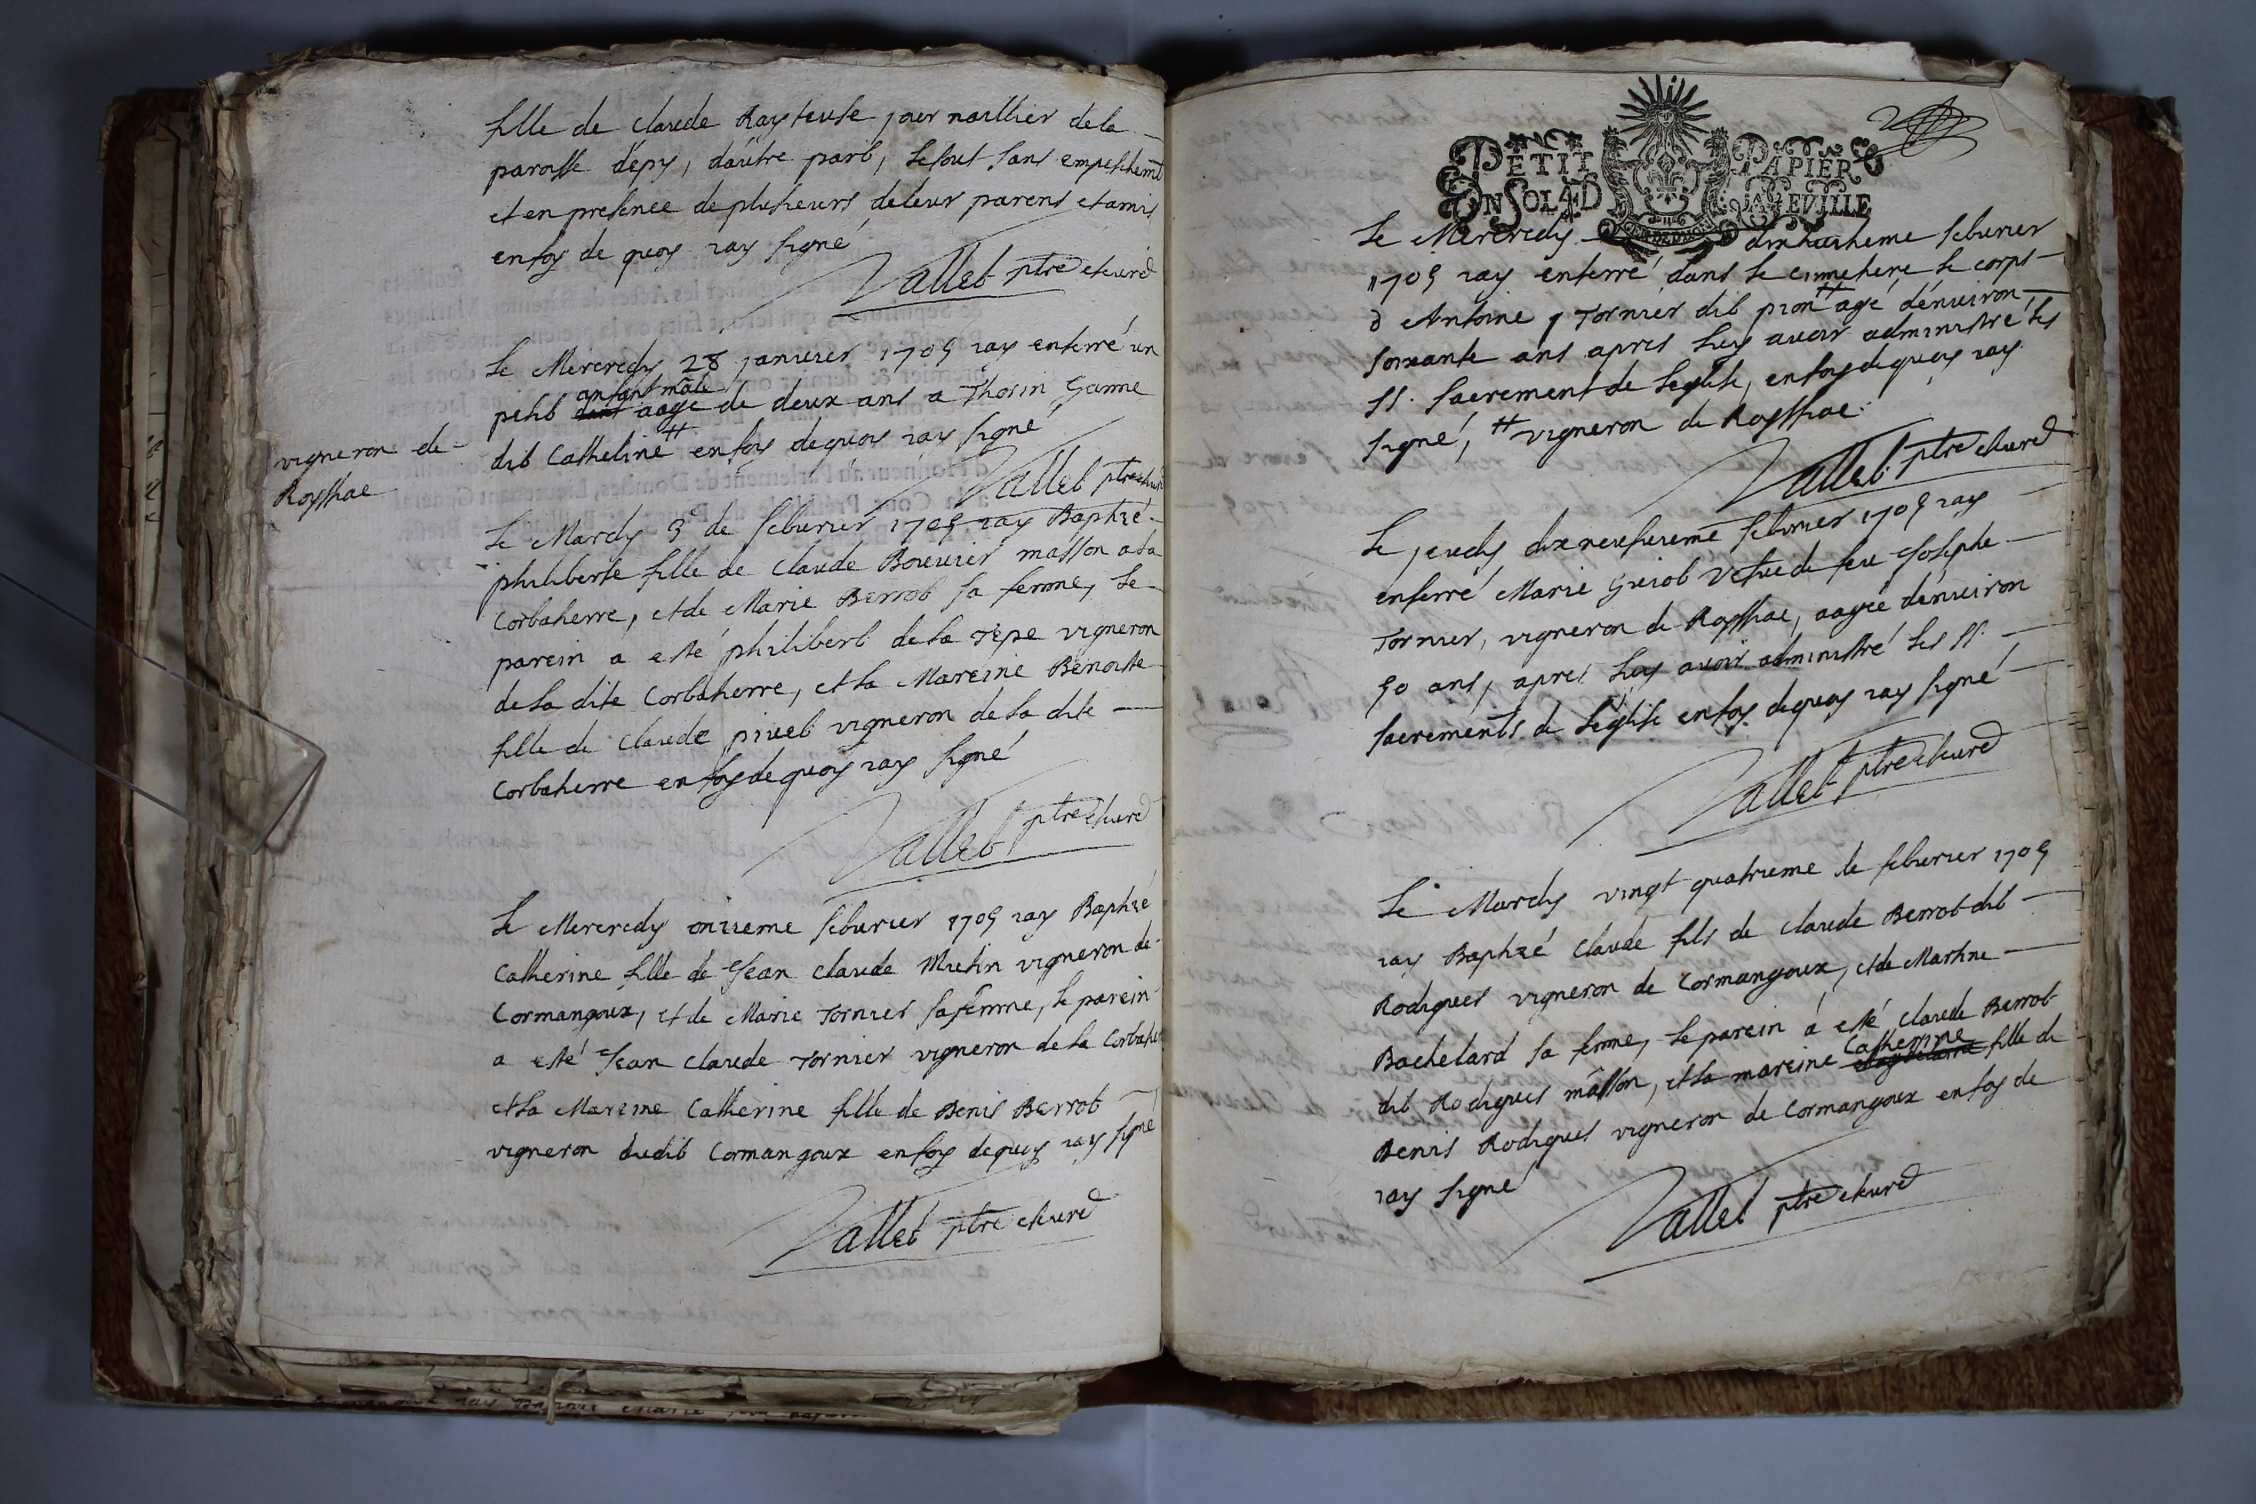 fille de claude Raysteute journaillier de la
paroisse d'épy, dautre part, le tout sans empeschemt
et en presence de plusieurs de leur parens et amis
en foy de quoy iay signé
Vallet ptre & curé
Le Mercredy 28 janvier 1705 iay enterré un
petit enfant mâle aagé de deux ans a Thorin Ganne
dit Catheline ++ en foy de quoy iay signé
vigneron de
Royssiac
Vallet ptre & curé
Le Mardy 3e de feburier 1705 iay Baptizé
philiberte fille de Claude Bouvier masson a la
Corbatierre, et de Marie Berrot sa femme, le
parein a esté philibert de la Tépe vigneron
de la dite Corbatierre, et la Mareine Benoite
fille de Claude pivet vigneron de la dite
Corbatierre en foy de quoy iay signé
Vallet ptre & curé
Le Mercredy onzieme feburier 1705 iay Baptizé
Catherine fille de Jean claude Mutin vigneron de
Cormangoux, et de Marie Tornier sa femme, le parein
a esté Jean claude Tornier vigneron de la Corbatier
et la Mareine Catherine fille de Denis Berrot
vigneron dudit Cormangoux en foy de quoy iay signé
Vallet ptre & curé
PETIT PAPIER
UN SOL 4 D LA FEVILLE
Le Mercredy dixhuitieme feburier
1705 iay enterré dans le cimetiere le corps
d'Antoine Tornier dit pion ++ agé d'enuiron
soixante ans apres luy avoir administré les
SS. sacrement de l'eglise, en foy de quoy iay
signé, ++ vigneron de Royssiac
Vallet ptre & curé
Le jeudy dix neufuieme feburier 1705 iay
enterré Marie Guiot Vefue de feu Josephe
Tornier, vigneron de Royssiac, aagée d'enuiron
50 ans, apres luy avoir administré les SS.
sacrements de l'église en foy de quoy iay signé
Vallet ptre & curé
Le Mardy vingt quatrieme de feburier 1705
iay Baptizé Claude fils de claude Berrot dit
Rodigues vigneron de Cormangoux, et de Martine
Bachelard sa femme, le parein a esté Claude Berrot
dit Rodigues masson, et la mareine Catherine fille de
Denis Rodigues vigneron de Cormangoux en foy de
iay signé
Vallet ptre & curé